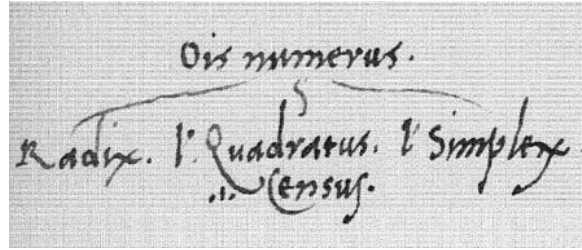 Ois numerus.
Radix. l' Quadratus. l' Simplex
.i. Census.